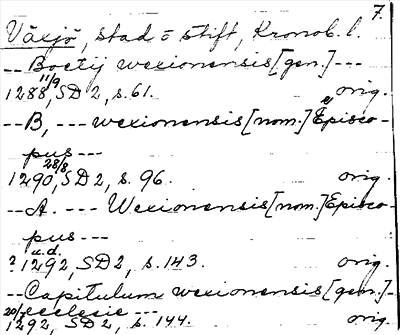 7.
Växjö, stad o stift, Kronob. l.
-- Boetij wexionensis [gen.] ---
1288 11/9, SD 2, s. 61. orig.
-- B, --- wexionensis [nom.] Episco-
pus ---
1290 28/8, SD 2, s. 96. orig.
-- A. --- Wexionensis [nom.] Episco-
pus ---
? u.d. 1292, SD 2, s. 143. orig.
-- Capitulum wexionensis [gen.]-
ecclesie ---
20/7 1292, SD 2, s. 144. orig.